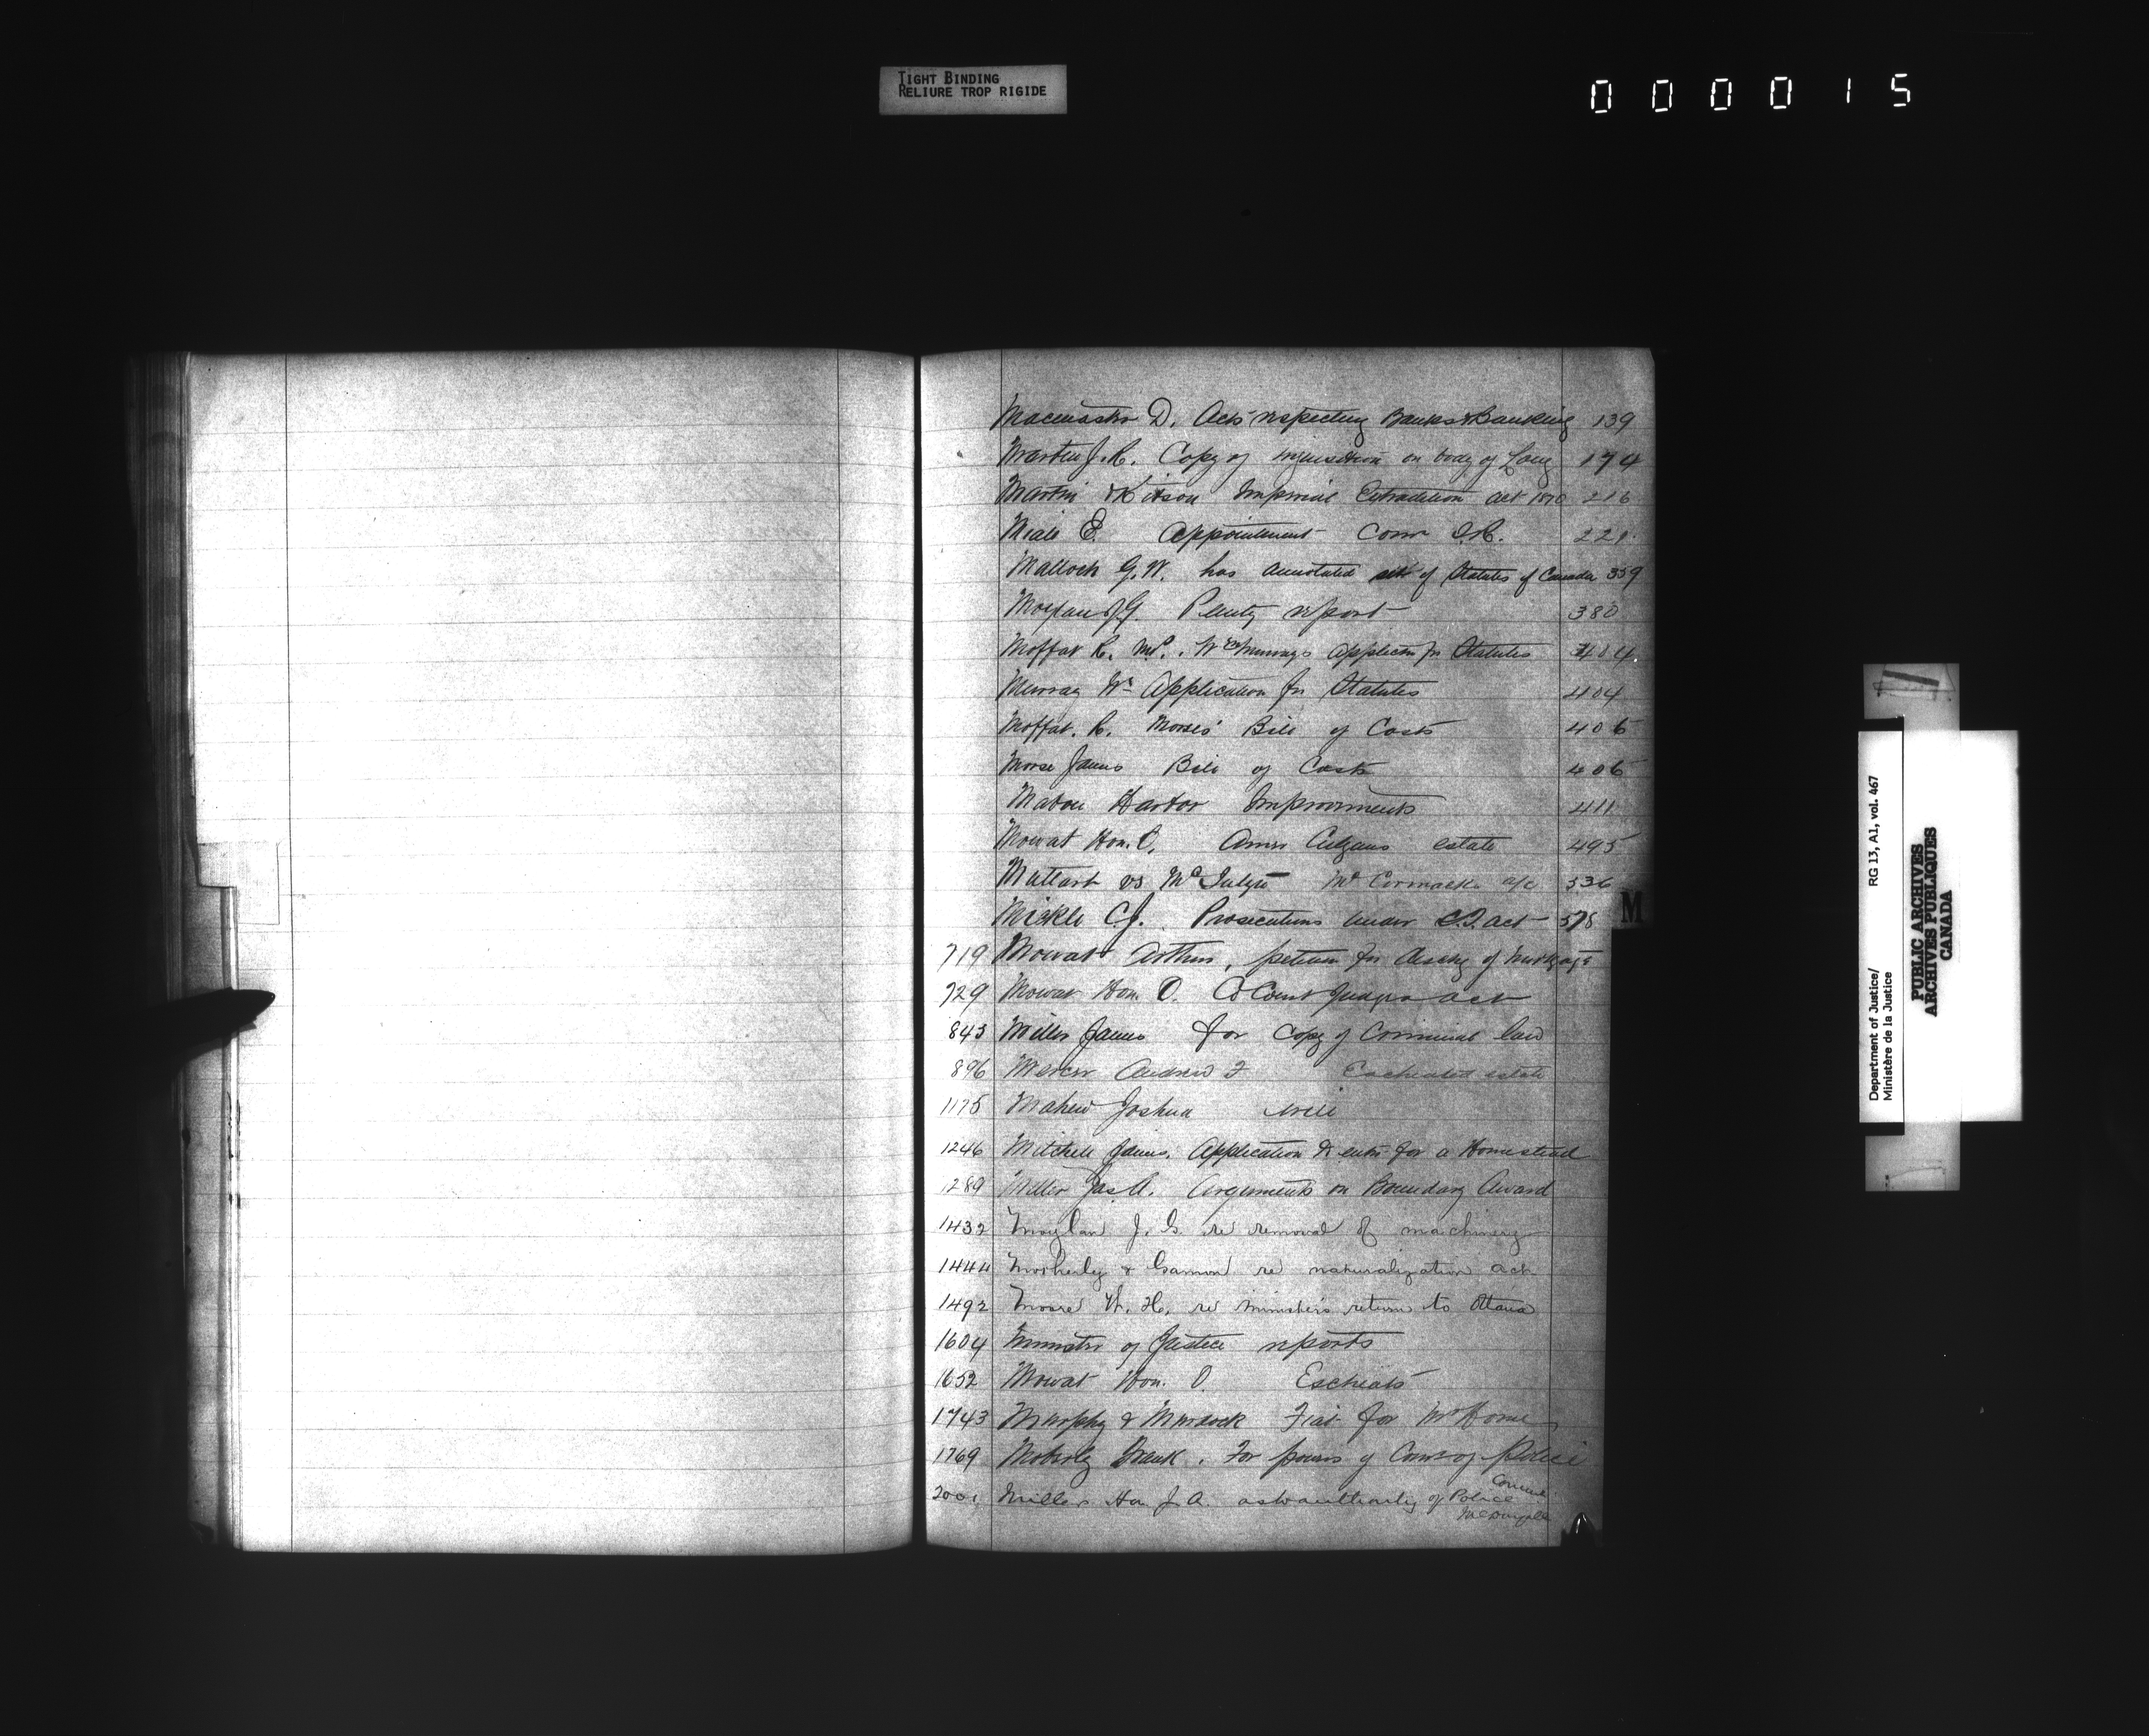 TIGHT BINDING
RELIURE TROP RIGIDE
000015
Macmaster D. Acts respecting Banks & Banking 139
Martin J. R. Copy of inquisition on body of Long 174
Martin & Kitson Imperial Extradition Act 1870 216
Miall E. Appointment Comr I.R. 221
Malloch G. W. has annotated set of Statutes of Canada 359
Moylan J. G. Penity report 380
Moffat R. MP. Wm Murrays applicatn for Statutes 404
Murray Wm Application for Statutes 404
Moffat. R. Morse's Bill of Costs 406
Morse James Bill of Costs 406
Mabou Harbor Improvements 411
Mowat Hon. O. estate 495
Mattart vs McIntyre McCormack a/c 536
Mickle C. J. Prosecutions under Act 578
719 Mowat Arthur, petition for dischg of mortgage
729 Mowat Hon. O. Co Court Judges act
843 Miller James for copy of Criminal law
896 Mercer Andrew F Escheated estate
1175 Mahew Joshua will
1246 Mitchell James. Application to entr for a Homestead
1289 Miller Jas. A. Arguments on Boundary Award
1432 Moylan J. G. re removal of machinery
1444 Motherly & re naturalization act
1492 Moore W. H. re minister's return to Ottawa
1604 Minister of Justice reports
1652 Mowat Hon. O. Escheats
1743 Murphy & Murdock Fiat for Mr Horne
1769 Moberly Frank. For powers of Comr of Police
2001 Miller Hon J. A. as to authority of Police Commr.
McDougall
M
Department of Justice/ RG 13, A1, vol. 467
Ministère de la Justice
PUBLIC ARCHIVES
ARCHIVES PUBLIQUES
CANADA